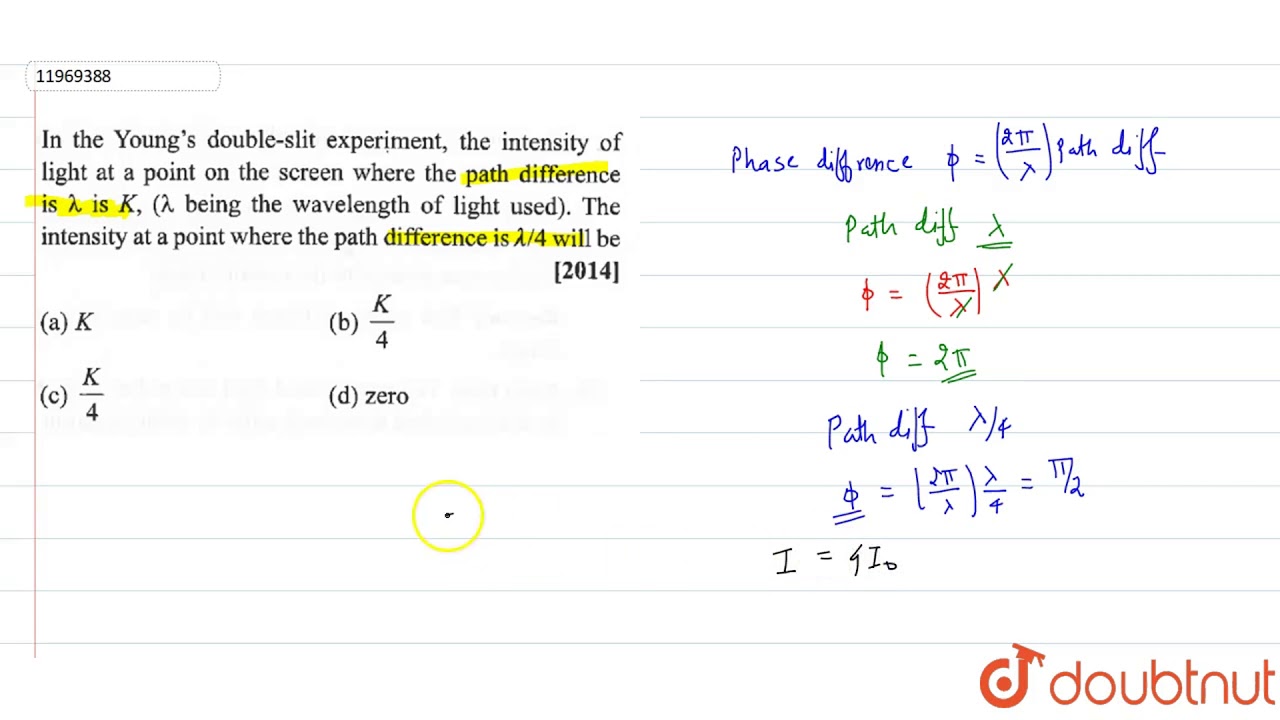 11969388
In the Young's double-slit experiment, the intensity of
light at a point on the screen where the path difference
is λ is K, (λ being the wavelength of light used). The
intensity at a point where the path difference is λ/4 will be
[2014]
(a) K (b) K/4
(c) K/4 (d) zero
Phase diffrence ϕ = (2π/λ) Path diff
Path diff λ
ϕ = (2π/λ) λ
ϕ = 2π
Path diff λ/4
ϕ = (2π/λ) λ/4 = π/2
I = 4I₀
doubtnut